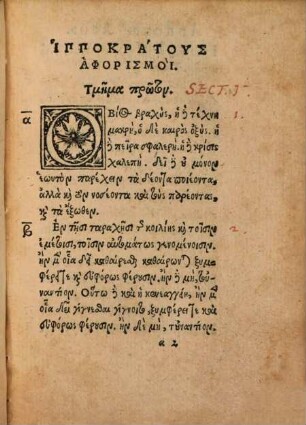 ἹΠΠΟΚΡΑ΄ΤΟΥΣ
ἈΦΟΡΙΣΜΟΊ.
Τμῆμα πρῶτον. SECT. I
α Ὁ Βίος βραχὺς, ἡ ἢ τέχνη 1.
μακρὴ, ὁ δὲ καιρὸς ὀξὺς. ἡ
ἢ πεῖρα σφαλερὴ. ἡ ἢ κρίσις
χαλεπὴ. Δεῖ ἢ οὐ μόνον
ἑωυτὸν παρέχειν τὰ δέοντα ποιέοντα,
ἀλλὰ καὶ τὸν νοσέοντα καὶ τοὺς παρέοντας,
καὶ τὰ ἔξωθεν.
β Ἐν τῇσι ταραχῇσι τῆς κοιλίης καὶ τοῖσιν 2.
ἐμέτοισι, τοῖσιν αὐτομάτως γενομένοισιν.
ἢν μὲν οἷα δεῖ καθαίρεσθαι καθαίρωνται, ξυμ-
φέρει τε καὶ εὐφόρως φέρουσιν. ἢν ἢ μὴ, τοὐ-
ναντίον. Οὕτω ἢ καὶ ἡ κενεαγγείη, ἢν μὲν
οἷα δεῖ γίγνεσθαι γίγνοιτο, ξυμφέρει τε καὶ
εὐφόρως φέρουσιν. ἢν δὲ μὴ, τοὐναντίον.
a 2